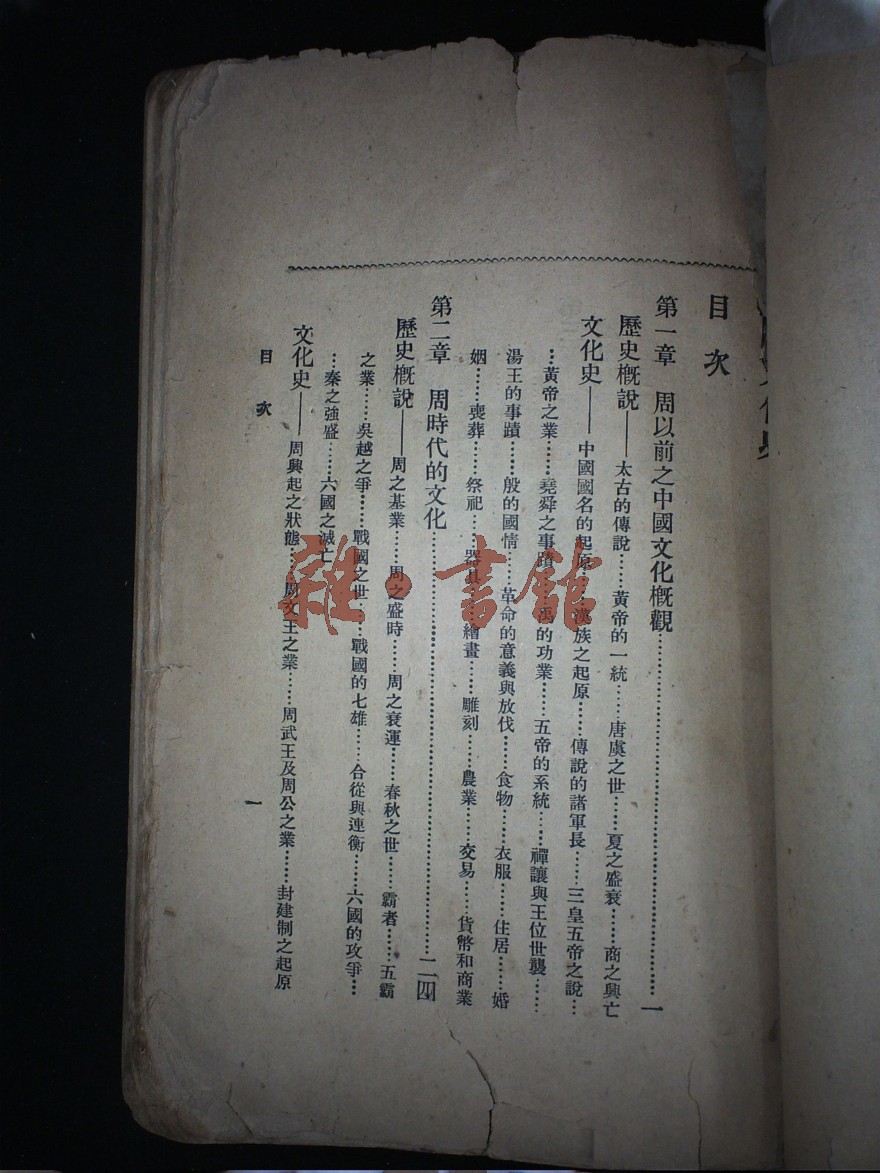 目次
第一章　周以前之中國文化概觀……………………一
歷史概說——太古的傳說……黃帝的一統……唐虞之世……夏之盛衰……商之興亡
文化史——中國國名的起原……漢族之起原……傳說的諸軍長……三皇五帝之說…
…黃帝之業……堯舜之事蹟……禹的功業……五帝的系統……禪讓與王位世襲……
湯王的事蹟……殷的國情……革命的意義與放伐……食物……衣服……住居……婚
姻……喪葬……祭祀……器具……繪畫……雕刻……農業……交易……貨幣和商業
第二章　周時代的文化……………………二四
歷史概說——周之基業……周之盛時……周之衰運……春秋之世……霸者……五霸
之業……吳越之爭……戰國之世……戰國的七雄……合從與連衡……六國的攻爭…
…秦之強盛……六國之滅亡
文化史——周興起之狀態……周文王之業……周武王及周公之業……封建制之起原
目次
一
雜·書館